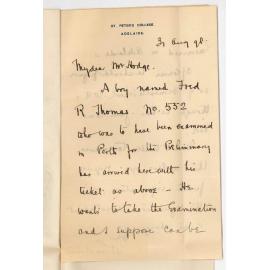 ST. PETER'S COLLEGE
ADELAIDE
31 Aug 98.
My dear Mr Hodge.
A boy named Fred
R Thomas No. 552
who was to have been examined
in Perth for the Preliminary
has arrived here with his
ticket as above - He
wants to take the Examination
and I suppose can be